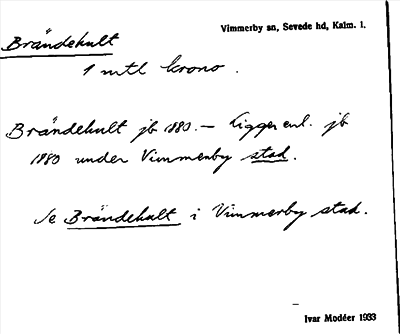 Vimmerby sn, Sevede hd, Kalm. l.
Brändekult
1 mtl krono.
Brändekult jb 1880. — Ligger enl. jb
1880 under Vimmerby stad.
Se Brändekult i Vimmerby stad.
Ivar Modéer 1933